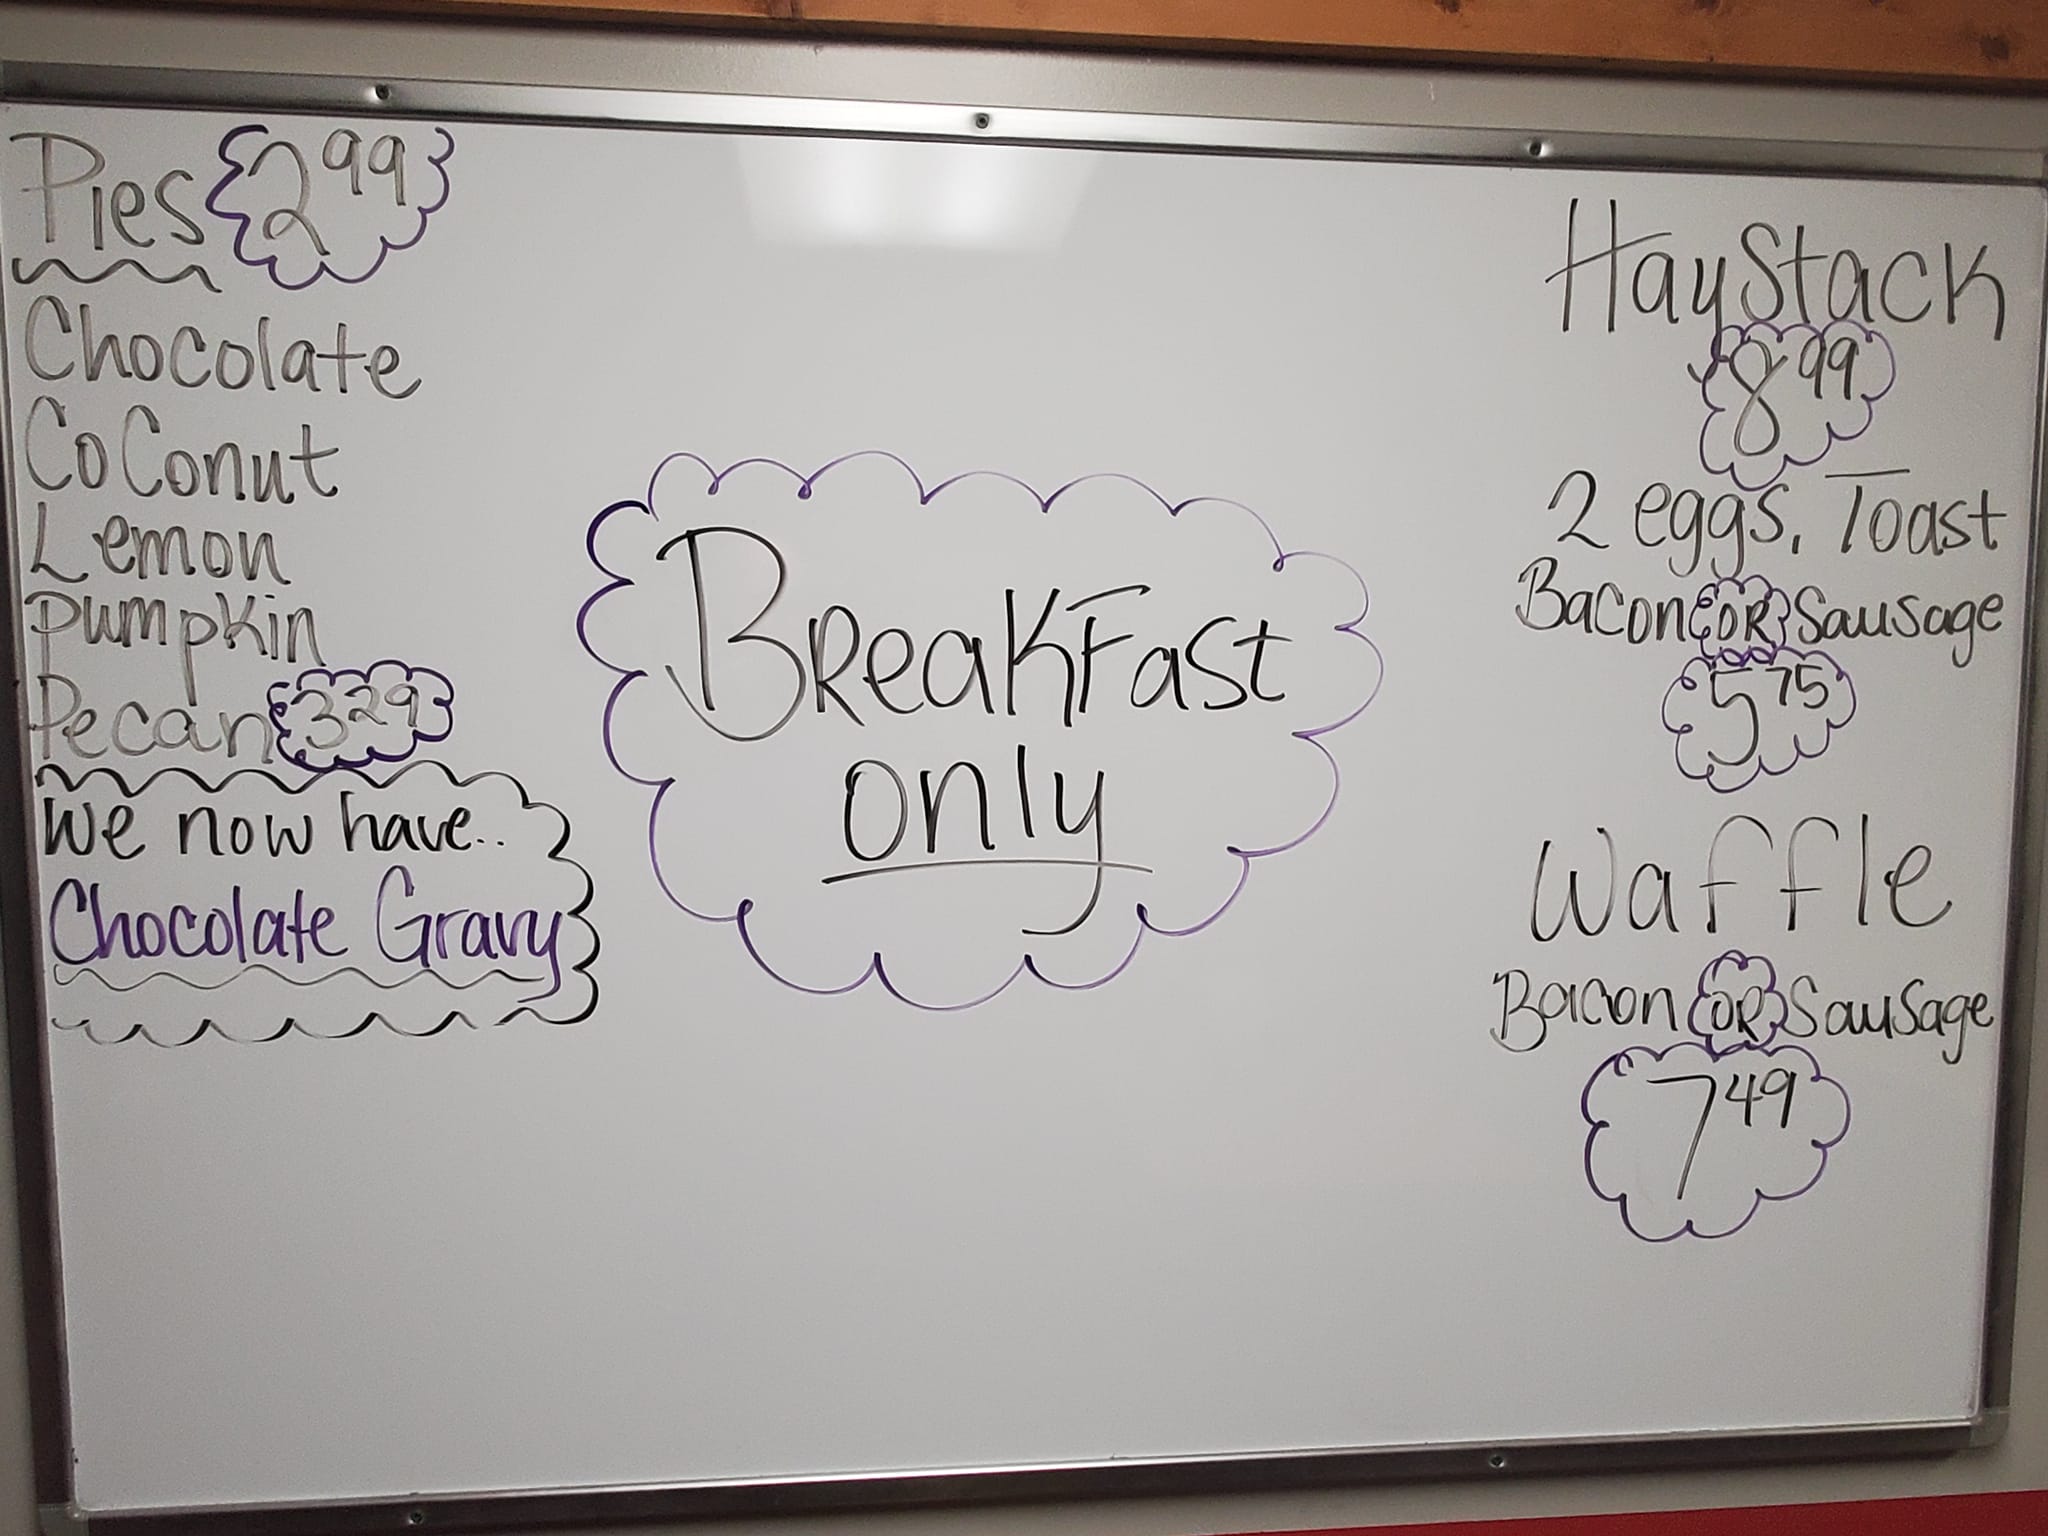 Pies 2.99
Chocolate
CoConut
Lemon
Pumpkin
Pecan 3.29
We now have..
Chocolate Gravy
BreakFast
only
HayStack
8.99
2 eggs, Toast
Bacon OR Sausage
5.75
Waffle
Bacon OR Sausage
7.49